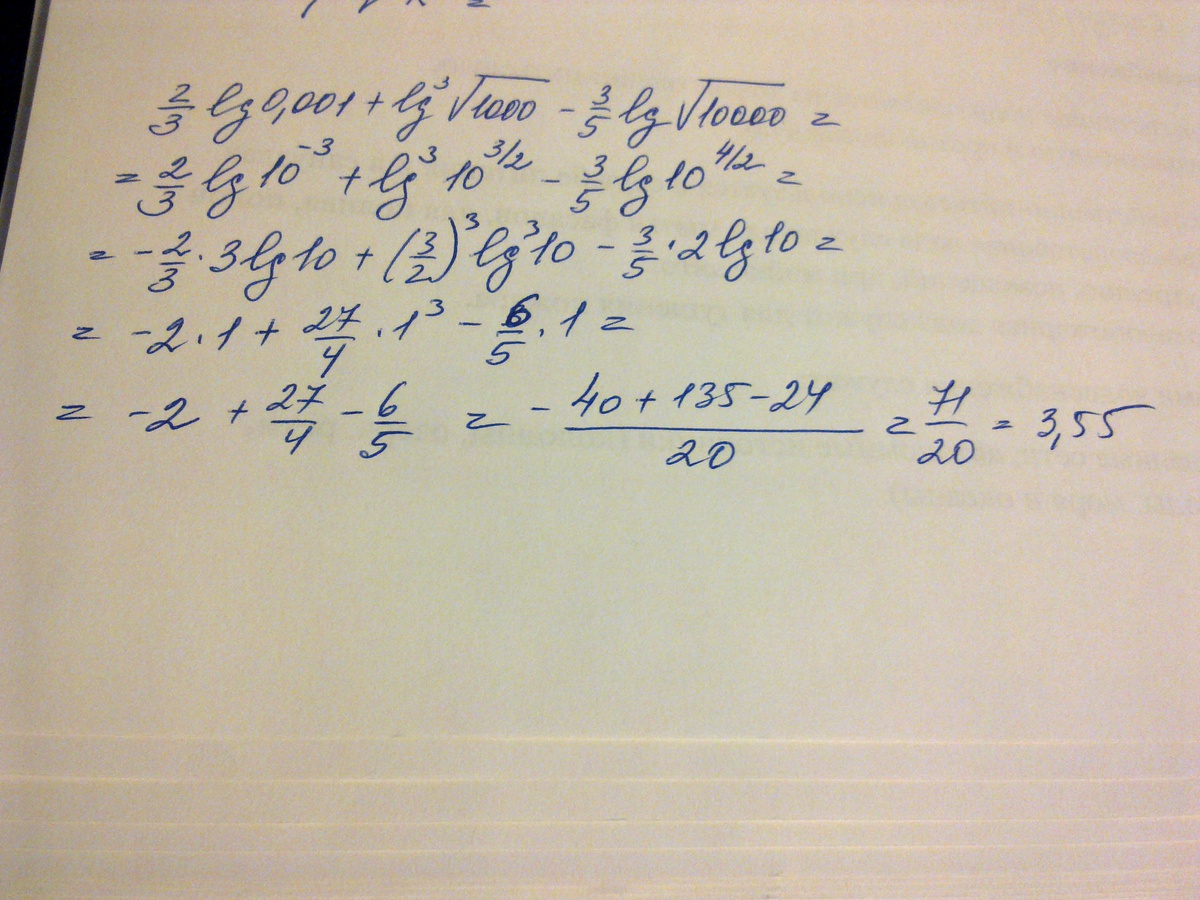 2/3 lg 0,001 + lg³ √1000 − 3/5 lg √10000 =
= 2/3 lg 10⁻³ + lg³ 10^(3/2) − 3/5 lg 10^(4/2) =
= −2/3 · 3 lg 10 + (3/2)³ lg³ 10 − 3/5 · 2 lg 10 =
= −2 · 1 + 27/4 · 1³ − 6/5 · 1 =
= −2 + 27/4 − 6/5 = − 40 + 135 − 24 / 20 = 71/20 = 3,55